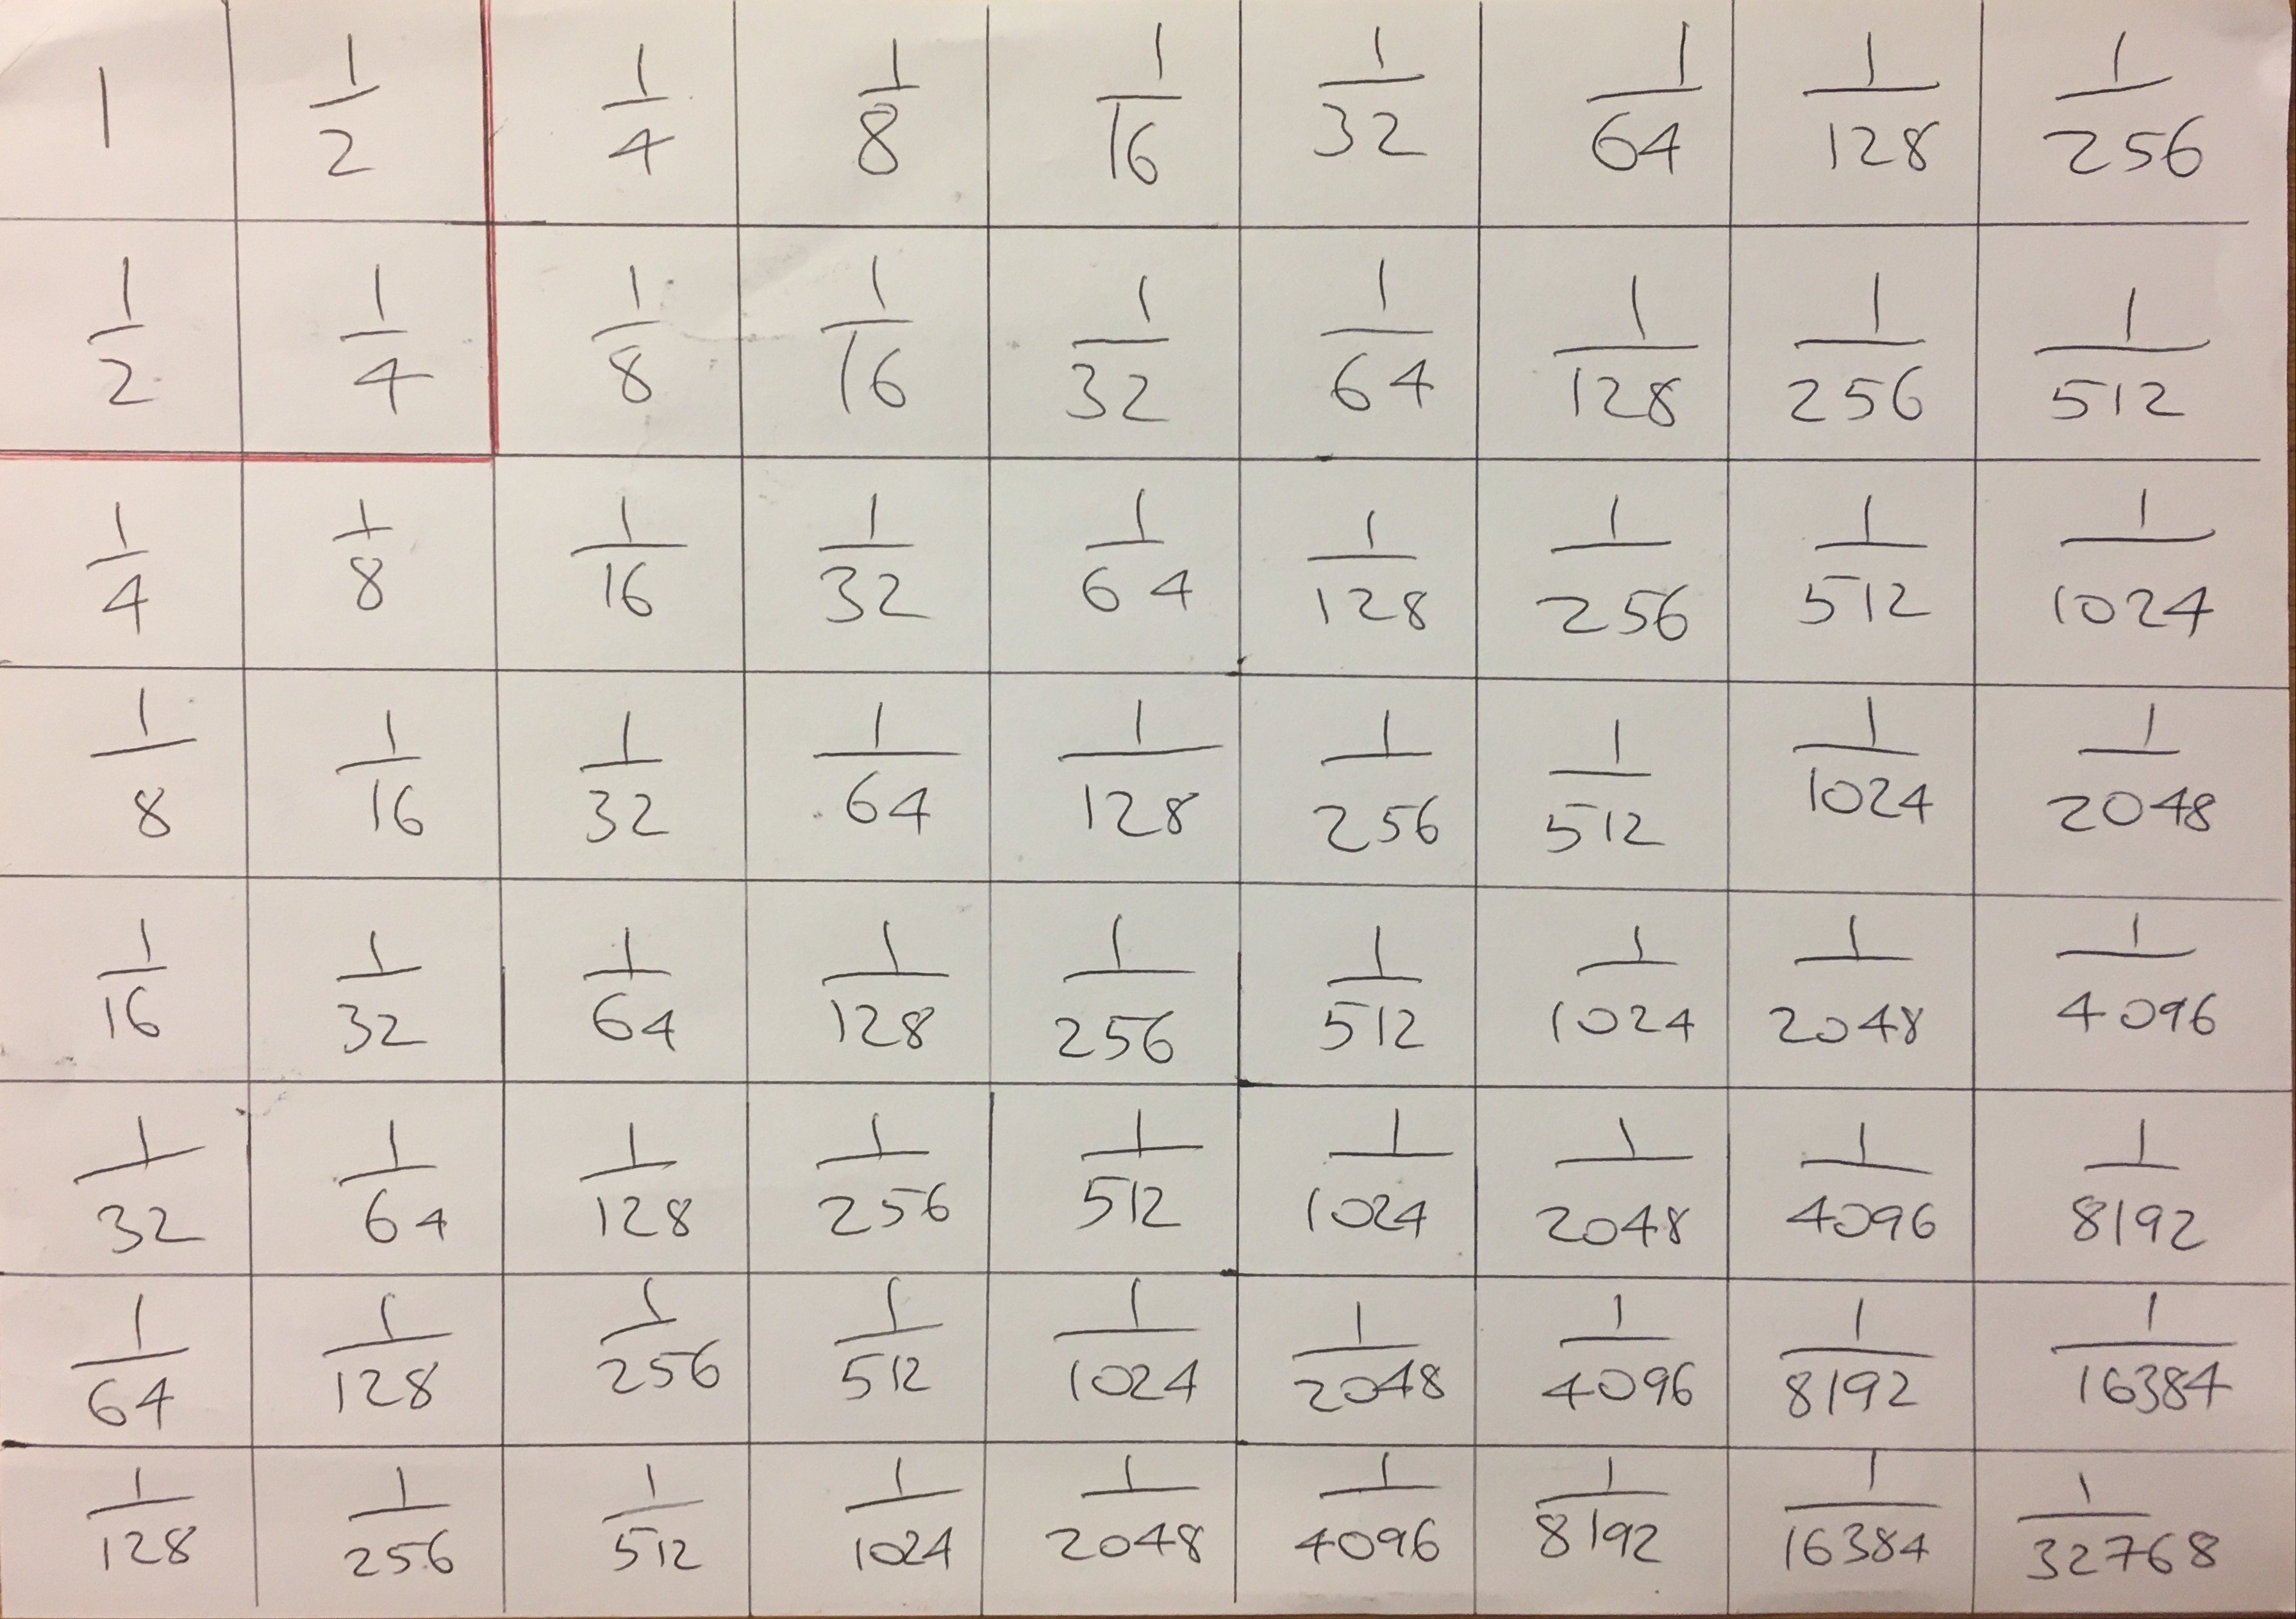 1 1/2 1/4 1/8 1/16 1/32 1/64 1/128 1/256
1/2 1/4 1/8 1/16 1/32 1/64 1/128 1/256 1/512
1/4 1/8 1/16 1/32 1/64 1/128 1/256 1/512 1/1024
1/8 1/16 1/32 1/64 1/128 1/256 1/512 1/1024 1/2048
1/16 1/32 1/64 1/128 1/256 1/512 1/1024 1/2048 1/4096
1/32 1/64 1/128 1/256 1/512 1/1024 1/2048 1/4096 1/8192
1/64 1/128 1/256 1/512 1/1024 1/2048 1/4096 1/8192 1/16384
1/128 1/256 1/512 1/1024 1/2048 1/4096 1/8192 1/16384 1/32768